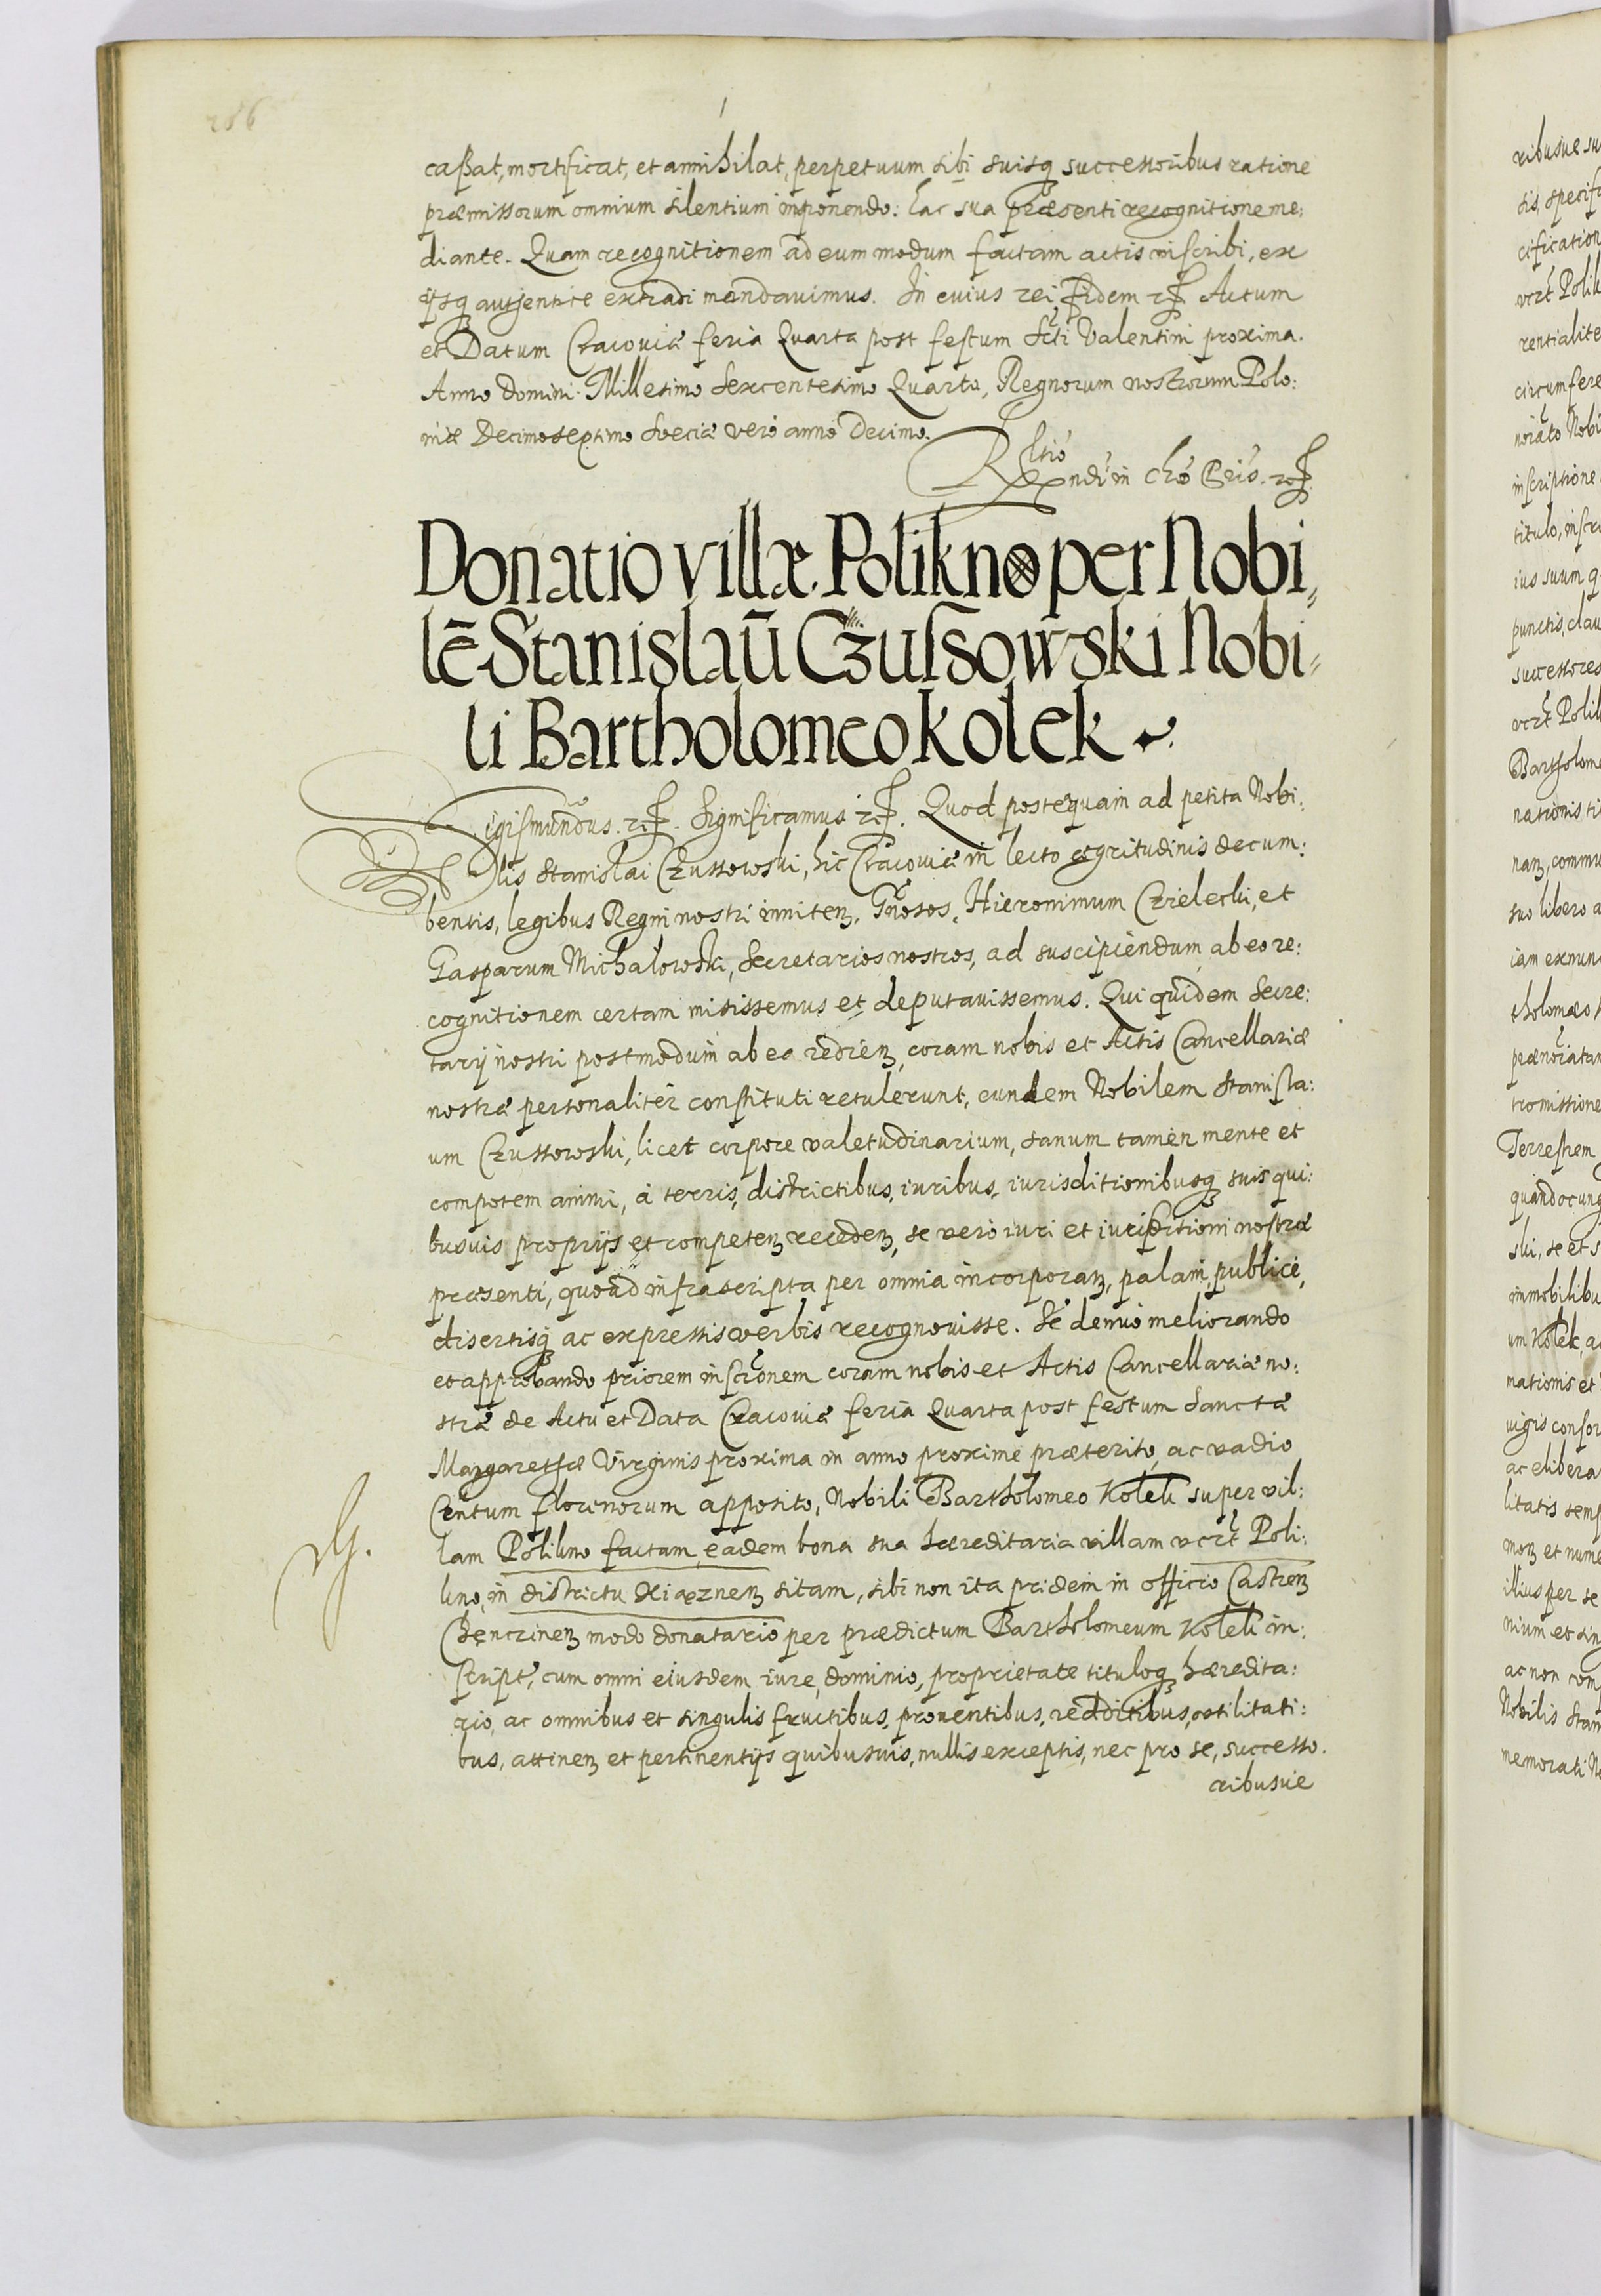 286
caßat, mortificat, et annihilat, perpetuum sibi suisq successoribus ratione
præmissorum omnium silentium imponendo: hac sua præsenti recognitione me:
diante. Quam recognitionem ad eum modum factam actis inscribi, ex
ijsq authentice extradi mandavimus. In cuius rei fidem etc. Actum
et Datum Cracoviæ feria Quarta post festum Scti Valentini proxima.
Anno Domini Millesimo Sexcentesimo Quarto, Regnorum nostrorum Polo:
niæ Decimoseptimo Sveciæ vero anno Decimo.
Donatio villæ Polikno per Nobi,,
lē Stanislaū Czussowski Nobi,,
li Bartholomeo Kolek
Sigismundus etc. Significamus etc. Quod postequam ad petita Nobi:
lis Stanislai Czussowski, hic Cracoviæ in lecto ægritudinis decum:
bentis, legibus Regni nostri inniten. Gnosos, Hieronimum Czielecki, et
Gasparum Michalowski, Secretarios nostros, ad suscipiendum ab eo re:
cognitionem certam misissemus et deputavissemus. Qui quidem Secre:
tarij nostri postmodum ab eo redien, coram nobis et Actis Cancellariæ
nostræ personaliter constituti retulerunt, eundem Nobilem Stanisla:
um Czussowski, licet corpore valetudinarium, sanum tamen mente et
compotem animi, à terris, districtibus, iuribus, iurisditionibusq suis qui:
busvis proprijs et competen receden, se vero iuri et iurisditioni nostræ
præsenti, quoad infrascripta per omnia incorporan, palam, publice,
disertisq ac expressis verbis recognovisse. Se denuo meliorando
et approbando priorem inscronem coram nobis et Actis Cancellariæ no:
stræ de Actu et Data Cracoviæ feria Quarta post festum Sanctæ
Margarethæ Virginis proxima in anno proxime præterito, ac vadio
Centum florenorum apposito, Nobili Bartholomeo Kolek super vil:
lam Polikno factam, eadem bona sua hæreditaria villam vert Poli:
kno, in districtu Xiąznen sitam, sibi non ita pridem in officio Castren
Chęncinen modo donatario per prædictum Bartholomeum Kolek in:
script, cum omni eiusdem iure, dominio, proprietate tituloq hæredita:
rio, ac omnibus et singulis fructibus, proventibus, redditibus, utilitati:
bus, attinen et pertinentijs quibusvis, nullis exceptis, nec pro se, successo.
ribusve